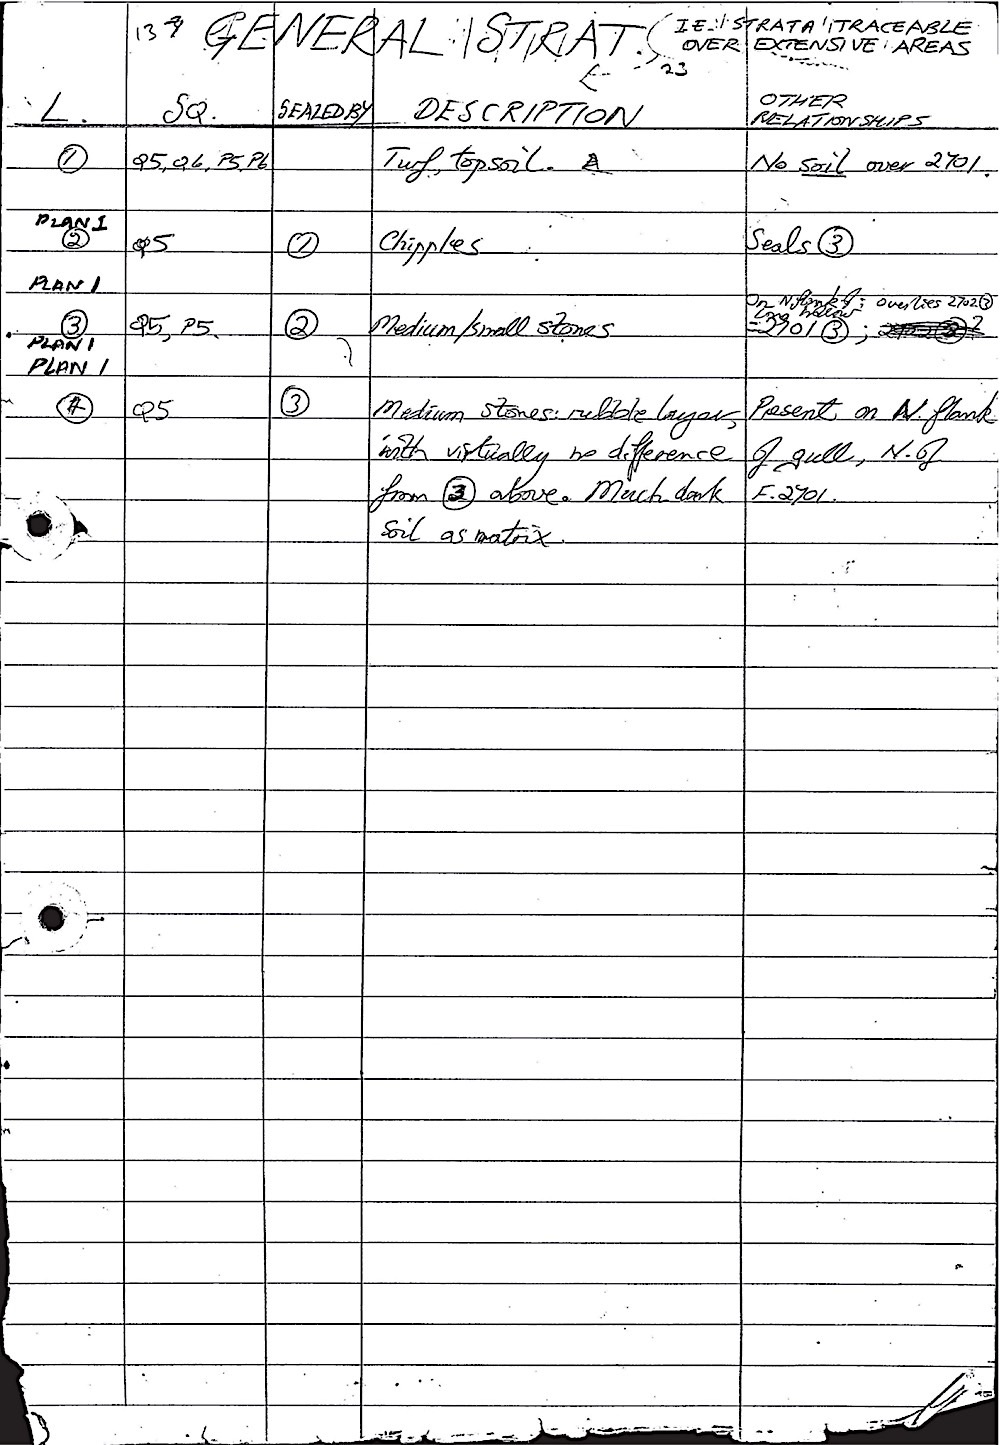 GENERAL STRAT. (I.E. STRATA TRACEABLE
OVER EXTENSIVE AREAS
← 23
L. SQ. SEALED BY DESCRIPTION OTHER RELATIONSHIPS
① Q5, Q6, P5, P6 Turf, topsoil. No soil over 2701.
PLAN 1
② Q5 ① Chipples Seals ③
PLAN 1
On N flank of; overlies 2702③
③ Q5, P5. ② Medium/small stones =2701③;
PLAN 1
PLAN 1
④ Q5 ③ Medium stones: rubble layer, Present on N. flank
with virtually no difference of gull, N. of
from ③ above. Much dark F.2701.
soil as matrix.